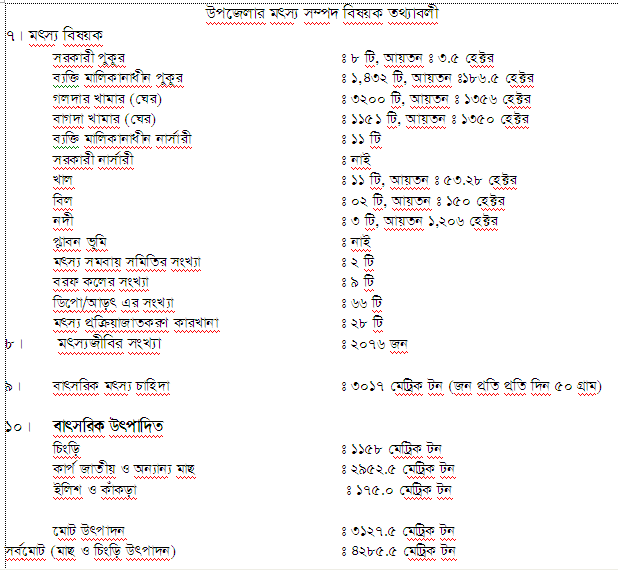 উপজেলার মৎস্য সম্পদ বিষয়ক তথ্যাবলী
৭। মৎস্য বিষয়ক
সরকারী পুকুর ঃ ৮ টি, আয়তন ঃ ৩.৫ হেক্টর
ব্যক্তি মালিকানাধীন পুকুর ঃ ১,৪৩২ টি, আয়তন ঃ১৮৬.৫ হেক্টর
গলদার খামার (ঘের) ঃ ৩২০০ টি, আয়তন ঃ ১৩৫৬ হেক্টর
বাগদা খামার (ঘের) ঃ ১১৫১ টি, আয়তন ঃ ১৩৫০ হেক্টর
ব্যক্তি মালিকানাধীন নার্সারী ঃ ১১ টি
সরকারী নার্সারী ঃ নাই
খাল ঃ ১১ টি, আয়তন ঃ ৫৩.২৮ হেক্টর
বিল ঃ ০২ টি, আয়তন ঃ ১৫০ হেক্টর
নদী ঃ ৩ টি, আয়তন ১,২০৬ হেক্টর
প্লাবন ভূমি ঃ নাই
মৎস্য সমবায় সমিতির সংখ্যা ঃ ২ টি
বরফ কলের সংখ্যা ঃ ৯ টি
ডিপো/আড়ৎ এর সংখ্যা ঃ ৬৬ টি
মৎস্য প্রক্রিয়াজাতকরণ কারখানা ঃ ২৮ টি
৮। মৎস্যজীবির সংখ্যা ঃ ২০৭৬ জন
৯। বাৎসরিক মৎস্য চাহিদা ঃ ৩০১৭ মেট্রিক টন (জন প্রতি প্রতি দিন ৫০ গ্রাম)
১০। বাৎসরিক উৎপাদিত
চিংড়ি ঃ ১১৫৮ মেট্রিক টন
কার্প জাতীয় ও অন্যান্য মাছ ঃ ২৯৫২.৫ মেট্রিক টন
ইলিশ ও কাঁকড়া ঃ ১৭৫.০ মেট্রিক টন
মোট উৎপাদন ঃ ৩১২৭.৫ মেট্রিক টন
সর্বমোট (মাছ ও চিংড়ি উৎপাদন) ঃ ৪২৮৫.৫ মেট্রিক টন